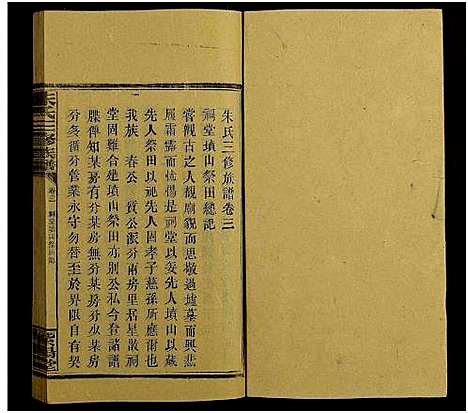 朱氏三修族譜卷三
祠堂墳山祭田總記
嘗觀古之人覩廟貌而思敬過墟墓而興悲
履霜露而怵惕是祠堂以妥先人墳山以藏
先人祭田以祀先人固孝子慈孫所應爾也
我族 春公 質公派分兩房里居星散祠
堂固難合建墳山祭田亦別公私今登諸譜
牒俾知某房有分某房無分某房分多某房
分少循分管業永守勿替至於界限自有契
朱氏三修族譜
卷三